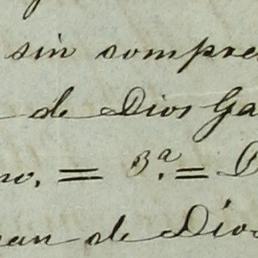 sin sompre
de Dios Ga
no. = 3.ª = D
uan de Dios